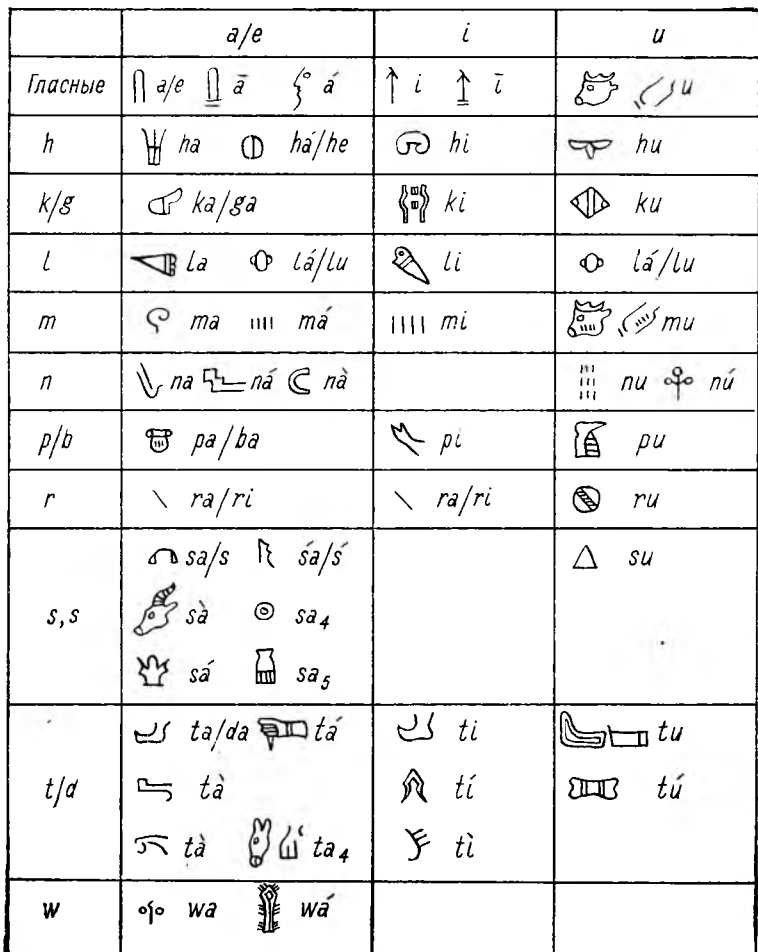 a/e i u
Гласные a/e ā á i ī u
h ha há/he hi hu
k/g ka/ga ki ku
l la lá/lu li lá/lu
m ma má mi mu
n na ná nà nu nú
p/b pa/ba pi pu
r ra/ri ra/ri ru
sa/s śa/ś su
s,s sà sa₄
sá sa₅
ta/da tá ti tu
t/d tà tí tú
tà ta₄ tì
w wa wá